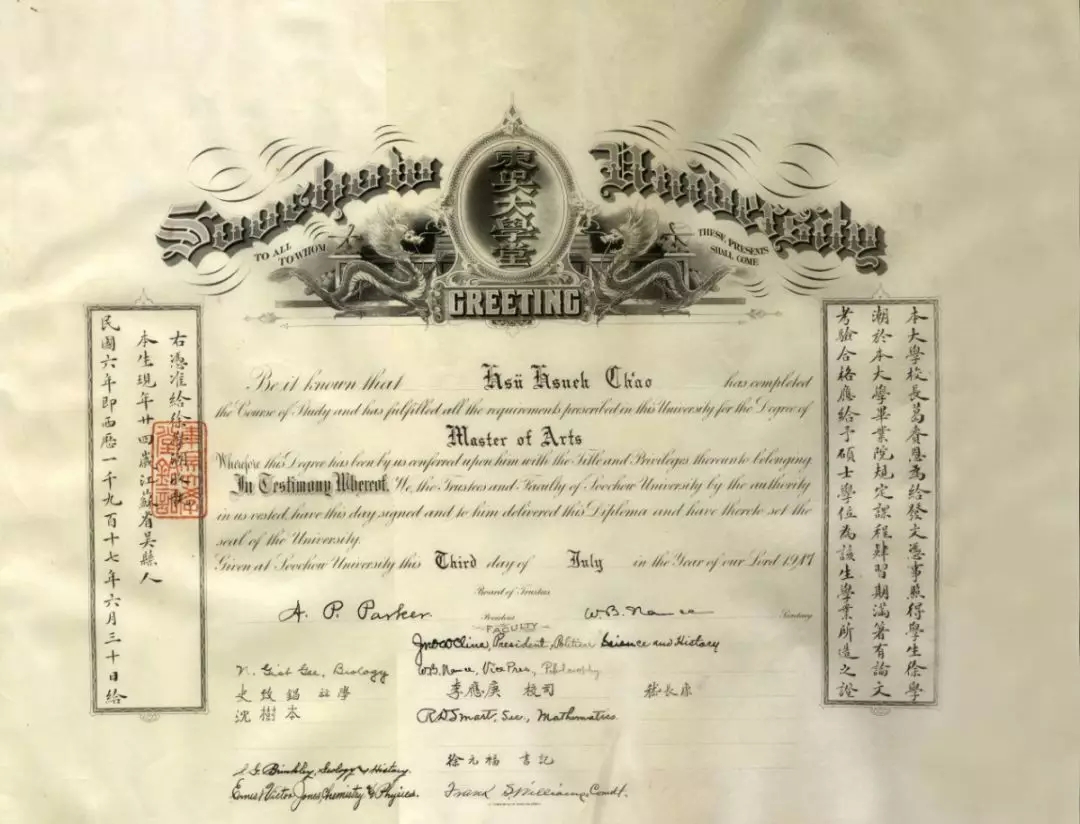 Soochow University
東吳大學堂
TO ALL TO WHOM
THESE PRESENTS SHALL COME
GREETING
本大學校長葛賚恩為給發文憑事照得學生徐學
潮於本大學畢業院規定課程肄習期滿著有論文
考驗合格應給予碩士學位為該生學業所造之證
Be it known that Hsü Hsueh Ch'ao has completed
the Course of Study and has fulfilled all the requirements prescribed in this University for the Degree of
Master of Arts
Wherefore this Degree has been by us conferred upon him with the Title and Privileges thereunto belonging.
In Testimony Whereof, We, the Trustees and Faculty of Soochow University by the authority
in us vested, have this day signed and to him delivered this Diploma and have thereto set the
seal of the University.
Given at Soochow University this Third day of July in the Year of our Lord 1917
右憑准給徐學潮收執
本生現年廿四歲江蘇省吳縣人
民國六年即西歷一千九百十七年六月三十日給
Board of Trustees
A. P. Parker President W.B. Nance Secretary
FACULTY
Jno W Cline, President, Political Science and History
N. Gist Gee, Biology W.B. Nance, Vice Pres., Philosophy
史致 李應庚 校司 長康
沈樹本 R D Smart, Sec., Mathematics
徐元福 書記
Brinkley, & History
Ernest Victor Jones, Chemistry & Physics. Frank S. Williams, Comdt.